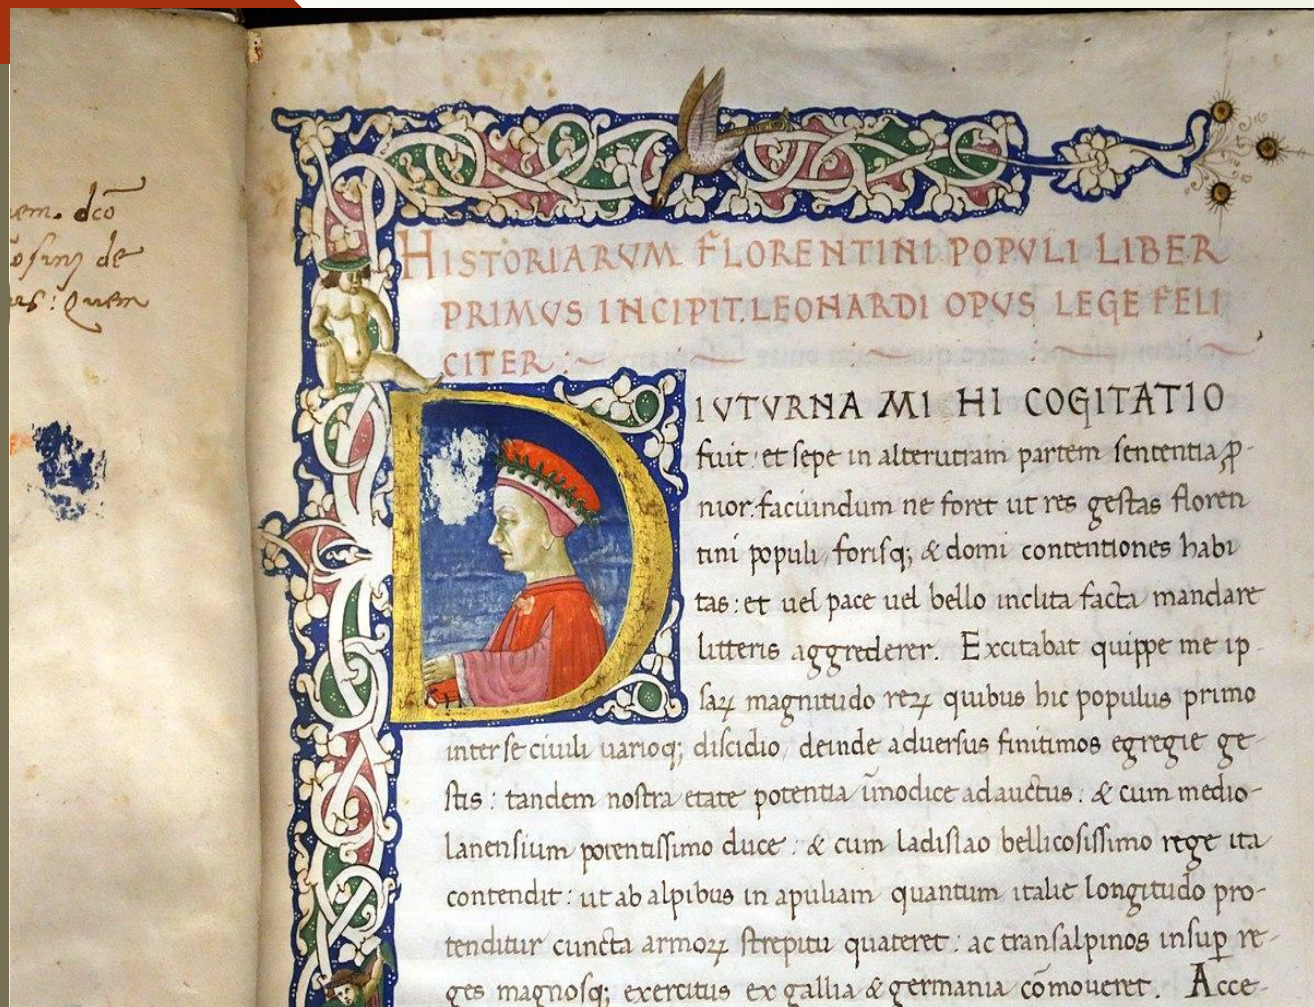 em. dco̅
osinj de
us: Quem
HISTORIARVM FLORENTINI POPVLI LIBER
PRIMVS INCIPIT. LEONARDI OPVS LEGE FELI
CITER :~
DIVTVRNA MI HI COGITATIO
fuit: et sepe in alterutram partem sententia ꝓ-
nior: faciundum ne foret ut res gestas floren
tini populi, forisq; & domi contentiones habi
tas: et uel pace uel bello inclita facta mandare
litteris aggrederer. Excitabat quippe me ip-
saꝝ magnitudo reꝝ quibus hic populus primo
inter se ciuili uarioq; discidio, deinde aduersus finitimos egregie ge-
stis: tandem nostra etate potentia ĩmodice adauctus: & cum medio-
lanensium potentissimo duce: & cum ladislao bellicosissimo rege ita
contendit: ut ab alpibus in apuliam quantum italie longitudo pro-
tenditur cuncta armoꝝ strepitu quateret: ac transalpinos insuꝑ re-
ges magnosq; exercitus ex gallia & germania cõmoueret. Acce-